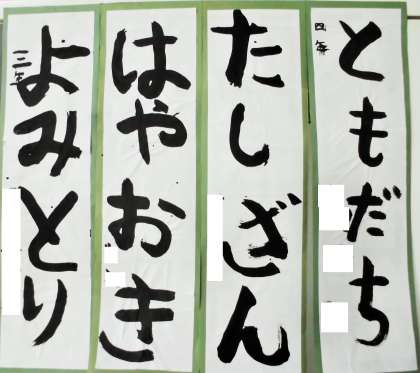 四年
ともだち
たしざん
はやおき
三年
よみとり